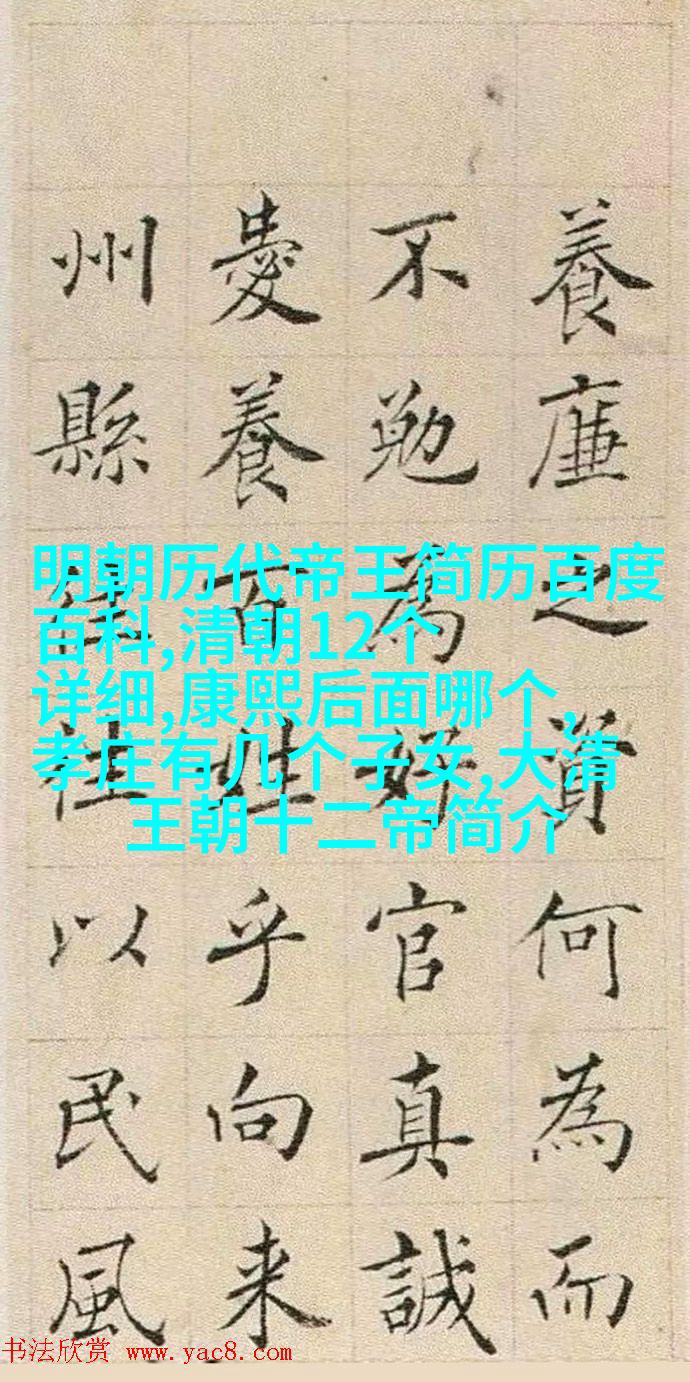 養廉之資何為而
不勉為好官真誠
愛養百姓乎向来
州縣往往以民風
明朝历代帝王简历百度
百科,清朝12个
详细,康熙后面哪个,
孝庄有几个子女,大清
王朝十二帝简介
书法欣赏 www.yac8.com